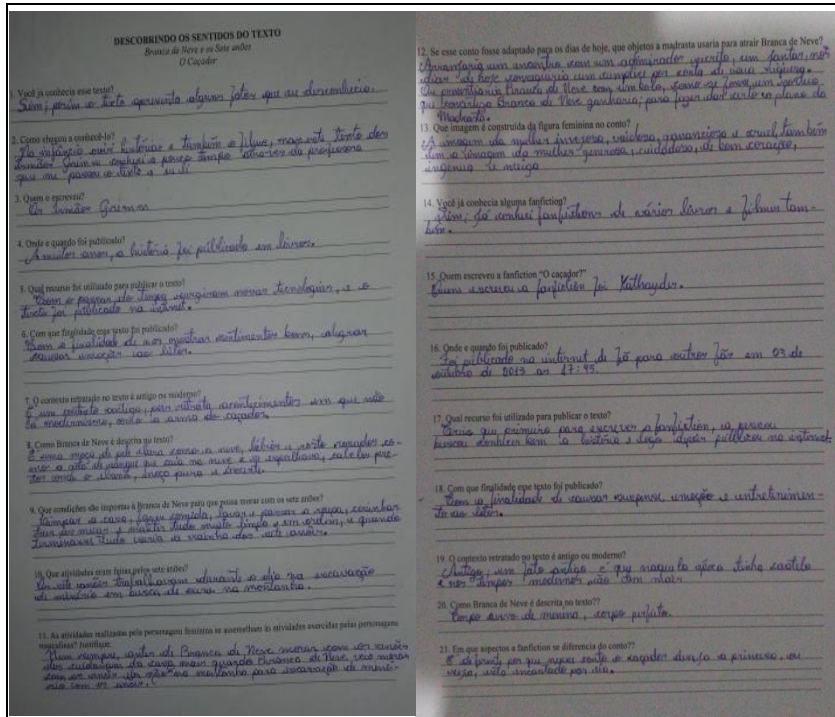 DESCOBRINDO OS SENTIDOS DO TEXTO
Branca de Neve e os Sete anões
O Caçador
1. Você já conhecia esse texto?
Sim; porém o texto apresenta alguns fatos que eu desconhecia.
2. Como chegou a conhecê-lo?
Na infância ouvi histórias e também o filme, mas este texto dos
irmãos Grimm conheci a pouco tempo através da professora
que me passou o texto e eu li
3. Quem o escreveu?
Os Irmãos Grimm
4. Onde e quando foi publicado?
A muitos anos, a história foi publicada em livros.
5. Qual recurso foi utilizado para publicar o texto?
Com o passar do tempo surgiram novas tecnologias, e o
texto foi publicado na internet.
6. Com que finalidade esse texto foi publicado?
Com a finalidade de nos mostrar sentimentos bons, alegrar
causar emoção ao leitor.
7. O contexto retratado no texto é antigo ou moderno?
É um contexto antigo, pois retrata acontecimentos em que não
há modernismo, como a arma do caçador.
8. Como Branca de Neve é descrita no texto?
É uma moça de pele clara como a neve, lábios e rosto rosados co-
mo a gota de sangue que caiu na neve e se espalhava, cabelos pre-
tos como o ébano, moça pura e inocente.
9. Que condições são impostas à Branca de Neve para que possa morar com os sete anões?
Limpar a casa, fazer comida, lavar e passar a roupa, costurar
fazer as meias e manter tudo muito limpo e em ordem, e quando
terminasse tudo seria a rainha dos sete anões.
10. Que atividades eram feitas pelos sete anões?
Os sete anões trabalhavam durante o dia na escavação
de minério em busca de ouro na montanha.
11. As atividades realizadas pela personagem feminina se assemelham às atividades exercidas pelas personagens
masculinas? Justifique.
Nem sempre, antes de Branca de Neve morar com os anões
eles cuidavam da casa, mais quando Branca de Neve veio morar
com os anões ela não ia na montanha para escavação de miné-
rio com os anões.
12. Se esse conto fosse adaptado para os dias de hoje, que objetos a madrasta usaria para atrair Branca de Neve?
Arranjaria um encontro com um admirador secreto, um jantar, nos
dias de hoje conseguiria um cumplice por conta de sua riqueza.
Ou presentiaria Branca de Neve com um bolo, como se fosse um sorteio
que Branca de Neve ganharia; para fazer dar certo o plano da
Madrasta.
13. Que imagem é construída da figura feminina no conto?
A imagem da mulher invejosa, vaidosa, gananciosa e cruel, também
tem a imagem da mulher generosa, cuidadosa, de bom coração,
ingenua e meiga
14. Você já conhecia alguma fanfiction?
Sim; já conheci fanfictions de vários livros e filmes tam-
bém.
15. Quem escreveu a fanfiction "O caçador?"
Quem escreveu a fanfiction foi Kathayder.
16. Onde e quando foi publicado?
Foi publicado na internet de fã para outros fãs em 03 de
outubro de 2013 as 17:45.
17. Qual recurso foi utilizado para publicar o texto?
Creio que primeiro para escrever a fanfiction, a pessoa
buscou conhecer bem a história e logo depois publicou na internet.
18. Com que finalidade esse texto foi publicado?
Com a finalidade de causar suspense, emoção e entretenimen-
to ao leitor.
19. O contexto retratado no texto é antigo ou moderno?
Antigo; um fato antigo é que naquela época tinha castelo
e nos tempos modernos não tem mais.
20. Como Branca de Neve é descrita no texto??
Corpo de menina, corpo perfeito.
21. Em que aspectos a fanfiction se diferencia do conto??
É diferente por que nesse conto o caçador deseja a princesa, ou
seja, está encantado por ela.